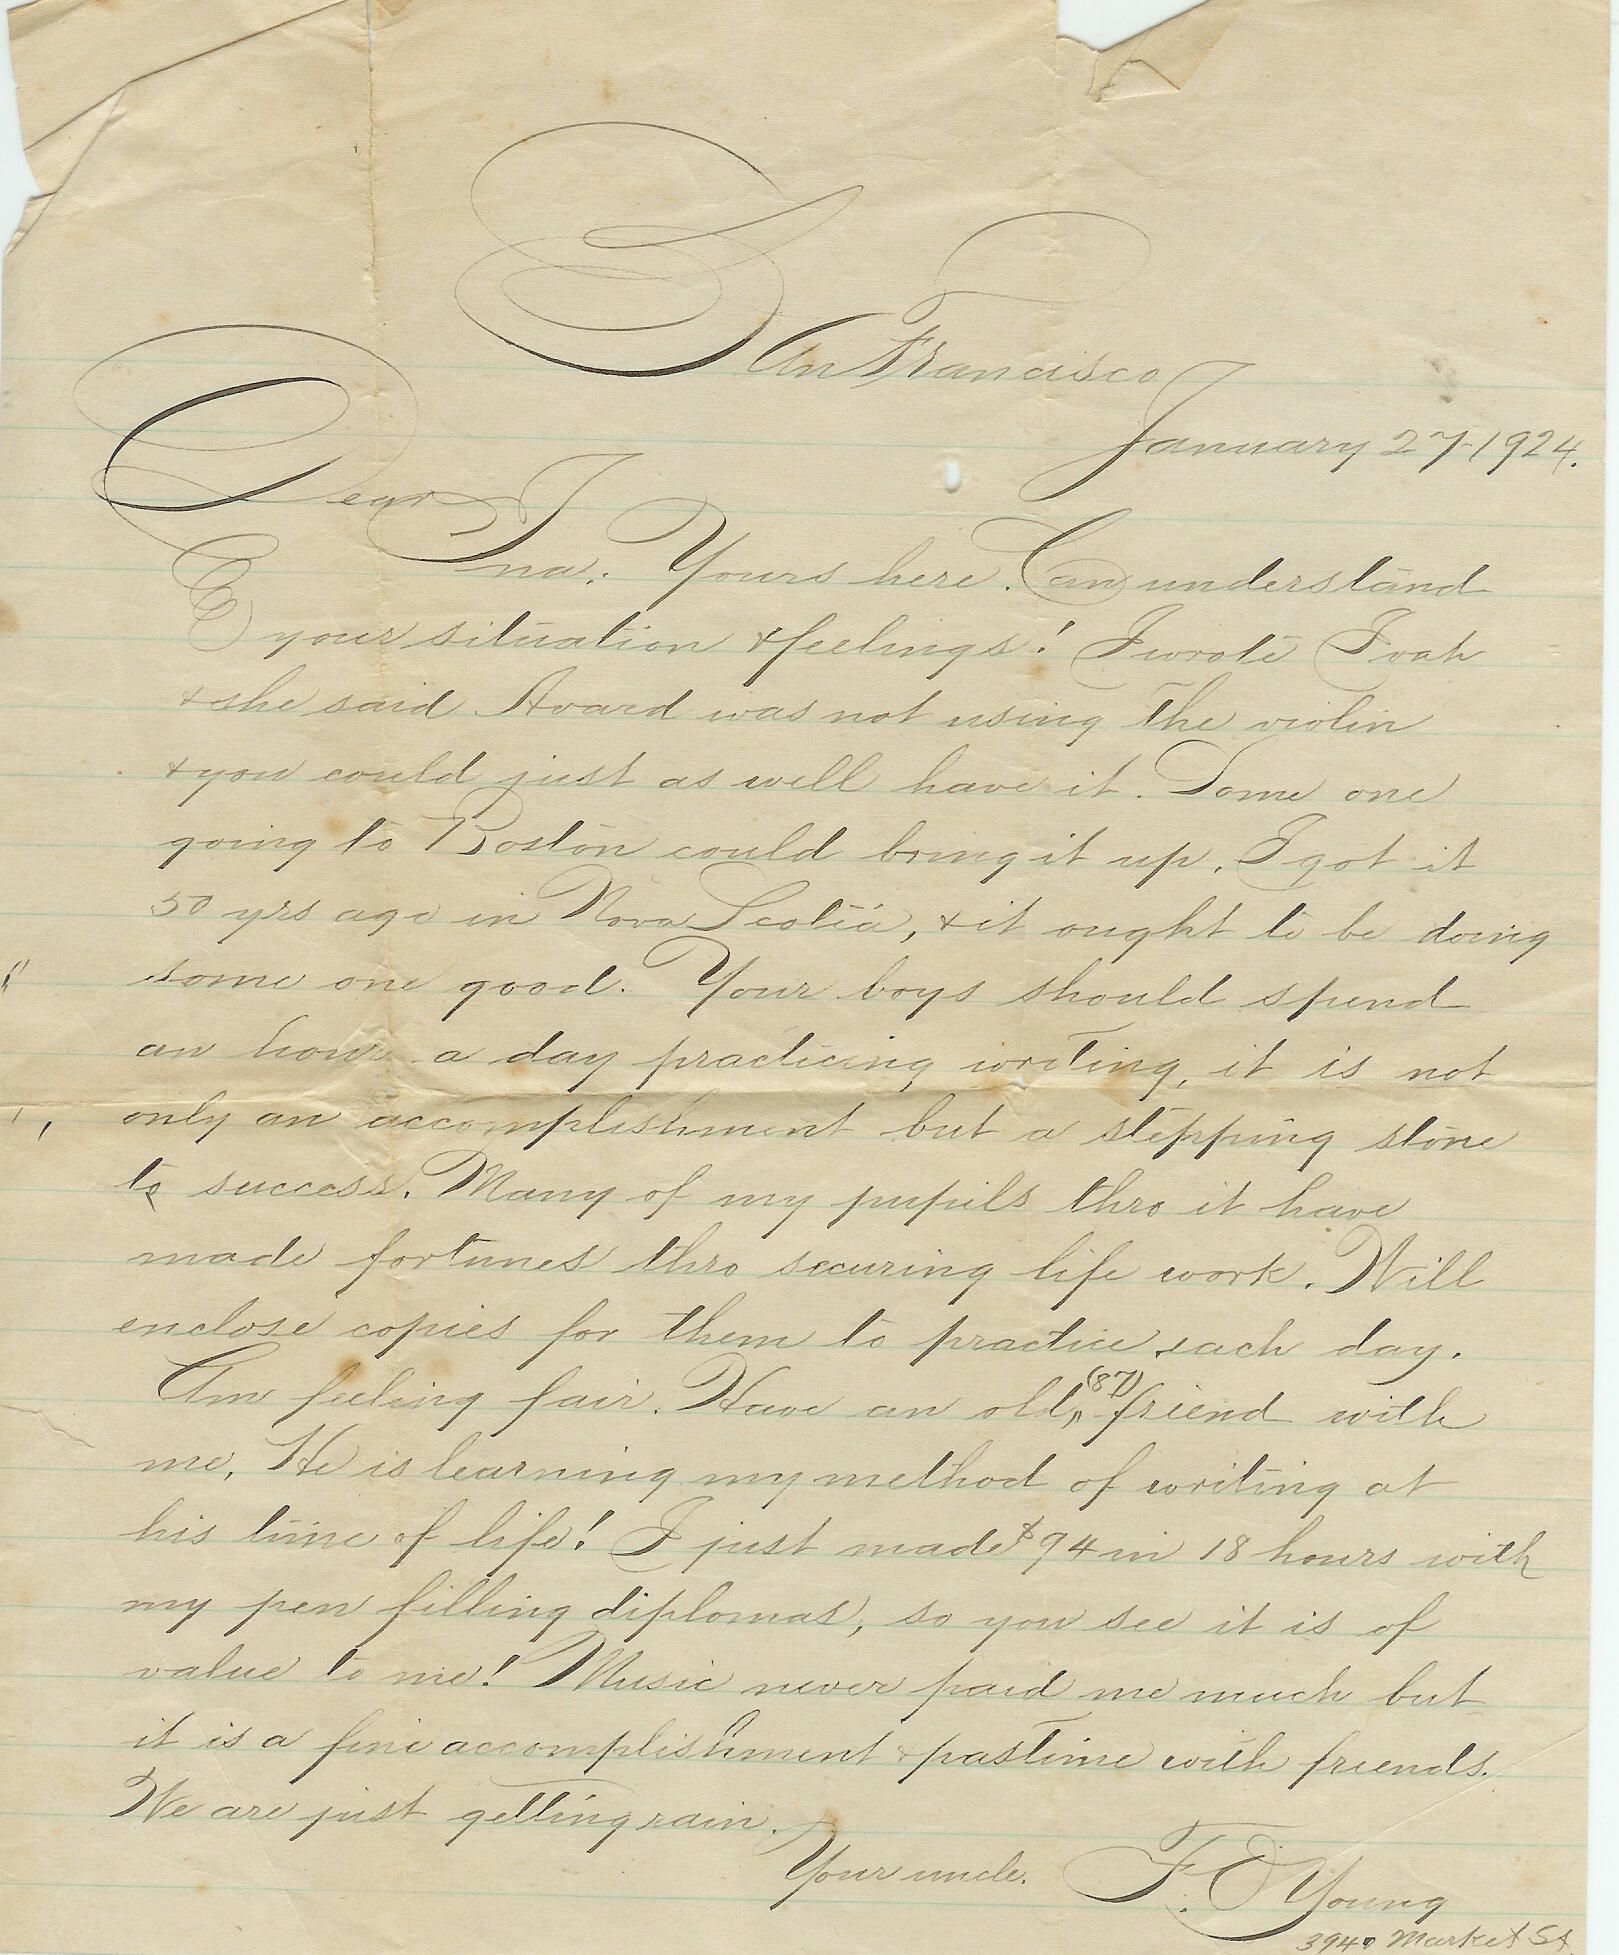 San Francisco
January 27-1924.
Dear
Ina: Yours here. Can understand
your situation & feelings! I wrote Ivah
& she said Avard was not using the violin
& you could just as well have it. Some one
going to Boston could bring it up. I got it
50 yrs ago in Nova Scotia, & it ought to be doing
some one good. Your boys should spend
an hour a day practicing writing, it is not
only an accomplishment but a stepping stone
to success. Many of my pupils thro it have
made fortunes thro securing life work. Will
enclose copies for them to practice each day.
Am feeling fair. Have an old (87) friend with
me. He is learning my method of writing at
his time of life! I just made $94 in 18 hours with
my pen filling diplomas, so you see it is of
value to me! Music never paid me much but
it is a fine accomplishment & pastime with friends.
We are just getting rain.
Your uncle.
F. O Young
3940 Market St